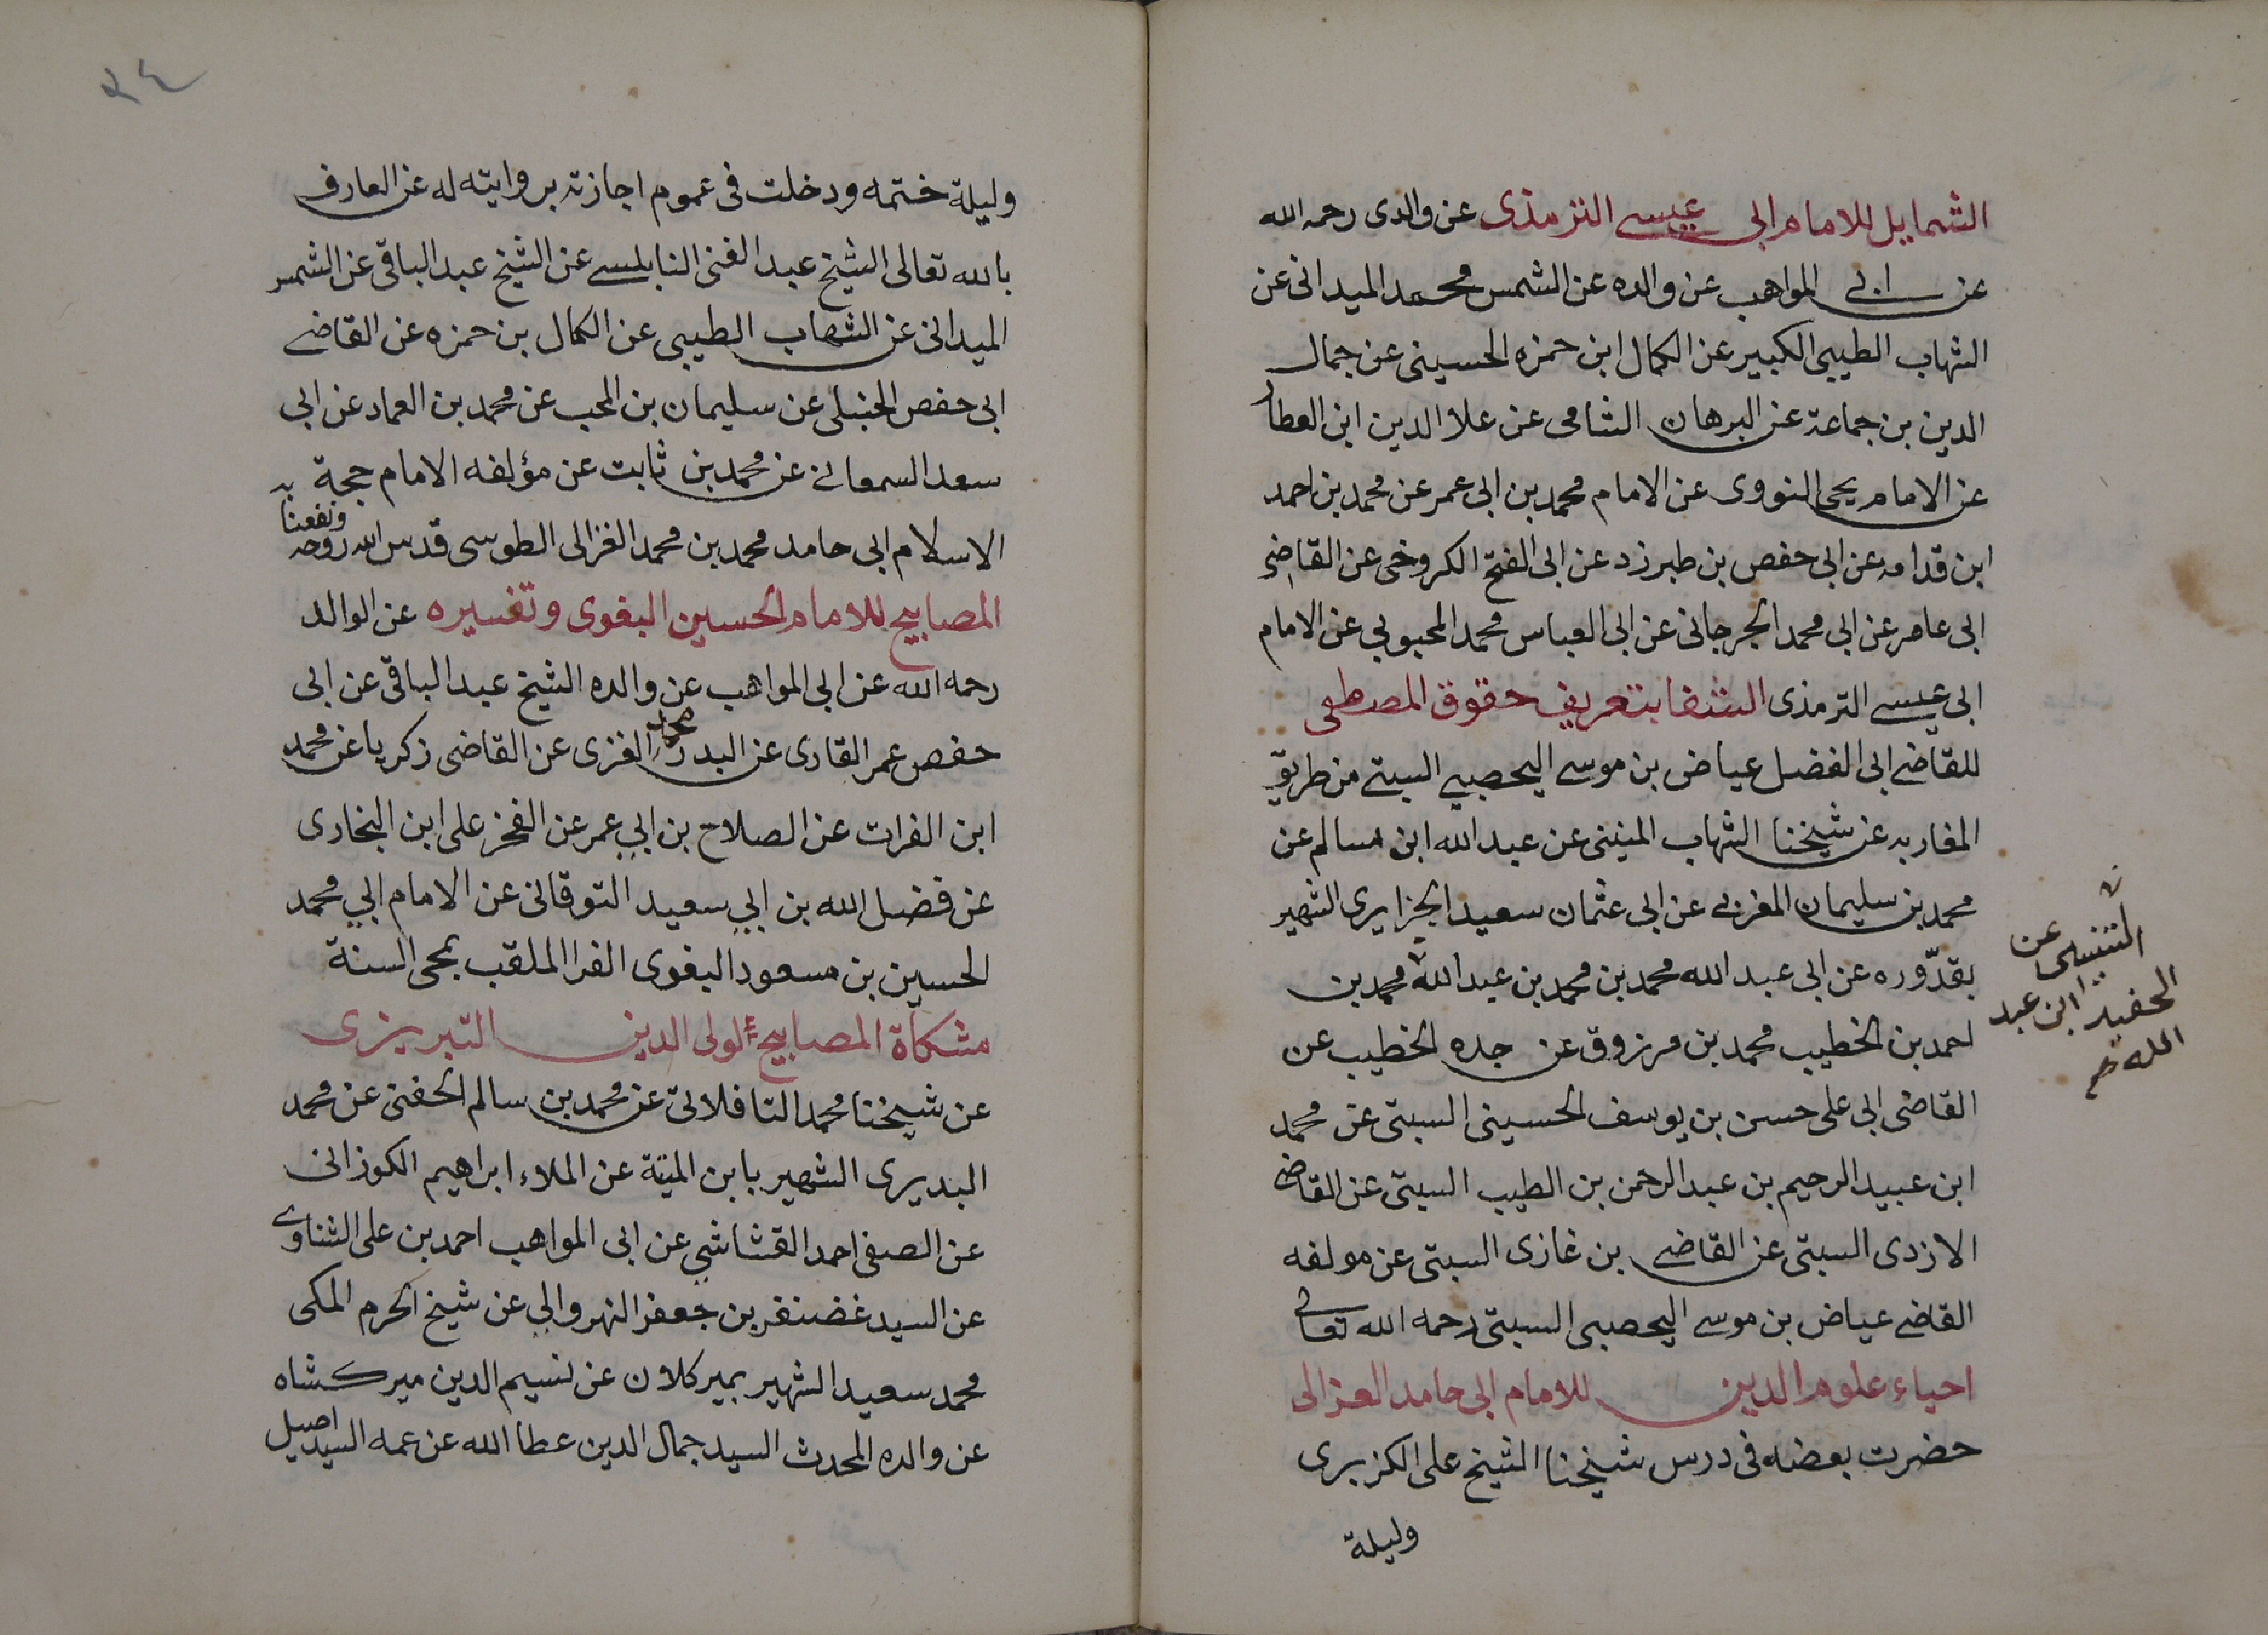 الشمايل للامام ابى عيسى الترمذى عن والدى رحمه الله
عن ابى المواهب عن والده عن الشمس محمد الميدانى عن
الشهاب الطيبى الكبير عن الكمال ابن حمزه الحسينى عن جمال
الدين بن جماعة عن البرهان الشامى عن علا الدين ابن العطار
عن الامام يحيى النووى عن الامام محمد بن ابى عمر عن محمد بن احمد
ابن قدامه عن ابى حفص بن طبرزد عن ابى الفتح الكروخى عن القاضى
ابى عامر عن ابى محمد الجرجانى عن ابى العباس محمد المحبوبى عن الامام
ابى عيسى الترمذى الشفا بتعريف حقوق المصطفى
للقاضى ابى الفضل عياض بن موسى اليحصبى السبتى من طريق
المغاربه عن شيخنا الشهاب المنينى عن عبد الله ابن سالم عن
محمد بن سليمان المغربى عن ابى عثمان سعيد الجزايرى الشهير
بقدّوره عن ابى عبد الله محمد بن محمد بن عبد الله محمد بن
احمد بن الخطيب محمد بن مرزوق عن جده الخطيب عن
القاضى ابى على حسن بن يوسف الحسينى السبتى عن محمد
ابن عبيد الرحيم بن عبد الرحمن بن الطيب السبتى عن القاضى
الازدى السبتى عن القاضى بن غازى السبتى عن مولفه
القاضى عياض بن موسى اليحصبى السبتى رحمه الله تعالى
احياء علوم الدين للامام ابى حامد الغزالى
حضرت بعضه فى درس شيخنا الشيخ على الكزبرى
وليلة
التنسى عن
الحفيد ابن عبد
الله صح
٢٤
وليلة ختمه ودخلت فى عموم اجازته بروايته له عن العارف
بالله تعالى الشيخ عبد الغنى النابلسى عن الشيخ عبد الباقى عن الشمس
الميدانى عن الشهاب الطيبى عن الكمال بن حمزه عن القاضى
ابى حفص الحنبلى عن سليمان بن المحب عن محمد بن العماد عن ابى
سعد السمعانى عن محمد بن ثابت عن مؤلفه الامام حجة
الاسلام ابى حامد محمد بن محمد الغزالى الطوسى قدس الله روحه ونفعنا به
المصابيح للامام الحسين البغوى وتفسيره عن الوالد
رحمه الله عن ابى المواهب عن والده الشيخ عبد الباقى عن ابى
حفص عمر القارى عن البدر محمد الغزى عن القاضى زكريا عن محمد
ابن الفرات عن الصلاح بن ابى عمر عن الفخر على ابن البخارى
عن فضل الله بن ابى سعيد التوقانى عن الامام ابى محمد
الحسين بن مسعود البغوى الفرا الملقب بمحى السنة
مشكاة المصابيح لولى الدين التبريزى
عن شيخنا محمد التافلاتى عن محمد بن سالم الحفنى عن محمد
البديرى الشهير بابن الميتة عن الملاء ابراهيم الكوزانى
عن الصفى احمد القشاشى عن ابى المواهب احمد بن على الشناوى
عن السيد غضنفر بن جعفر النهروالى عن شيخ الحرم المكى
محمد سعيد الشهير بمير كلان عن نسيم الدين ميرك شاه
عن والده المحدث السيد جمال الدين عطا الله عن عمه السيد اصيل